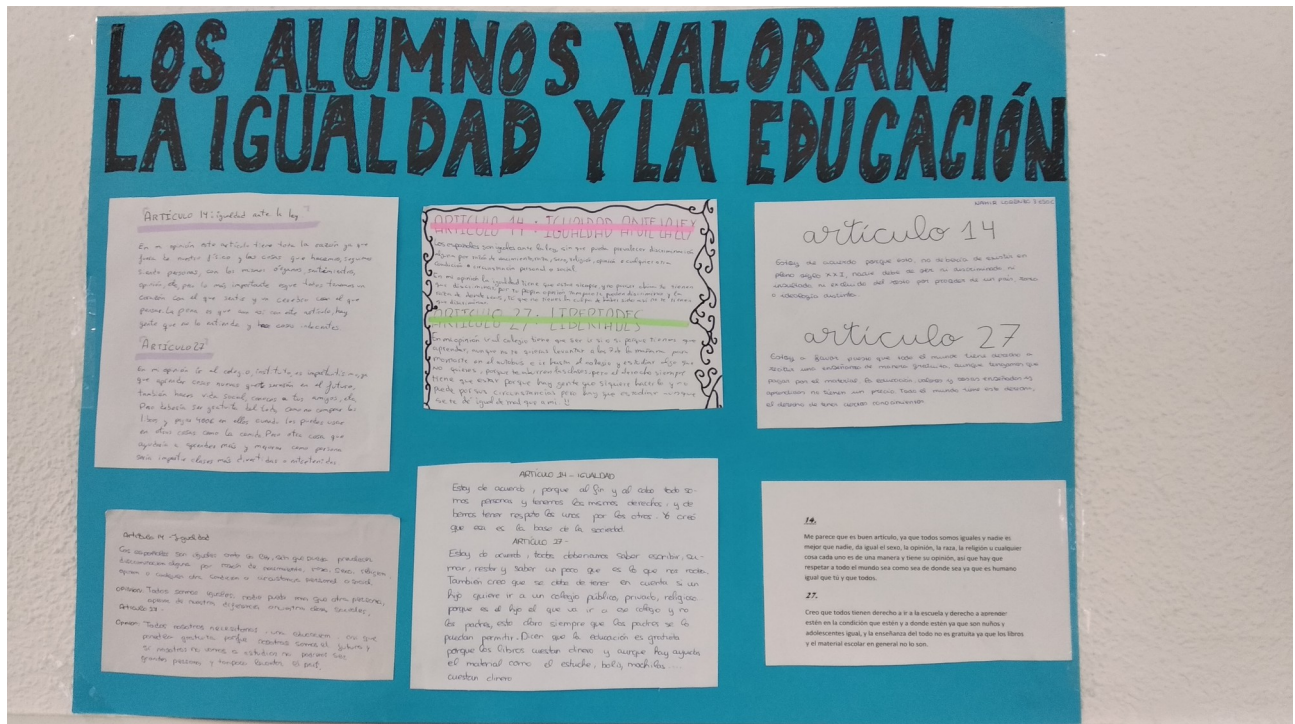 LOS ALUMNOS VALORAN
LA IGUALDAD Y LA EDUCACIÓN
"ARTÍCULO 14: igualdad ante la ley"
En mi opinión este artículo tiene toda la razón ya que
fuera lo mater físico y las cosas que hacemos, seguimos
siento personas, con los mismos órganos, sentimientos,
opinión, etc, pero lo más importante es que todos tenemos un
corazón con el que sentir y un cerebro con el que
pensar. La pena es que aun así con este artículo, hay
gente que no lo entiende y hace cosas indecentes.
"ARTÍCULO 27"
En mi opinión ir al colegio, instituto, es importantísimo ya
que aprendes cosas nuevas que te servirán en el futuro,
también haces vida social, conoces a tus amigos, etc.
Pero debería ser gratuita del todo, como no comprar los
libros y pagar 400€ en ellos cuando los puedes usar
en otras cosas como la comida. Pero otra cosa que
ayudaría a aprender más y mejorar como persona
sería impartir clases más divertidas o entretenidas
ARTÍCULO 14 - IGUALDAD ANTE LA LEY
Los españoles son iguales ante la ley, sin que pueda prevalecer discriminación
alguna por razón de nacimiento, raza, sexo, religión, opinión o cualquier otra
condición o circunstancia personal o social.
En mi opinión la igualdad tiene que estar siempre, y no pensar
ARTÍCULO 27 - LIBERTADES
En mi opinión ir al colegio tiene que ser si o si porque tienes que
aprender, aunque no te quieras levantar a las 7 de la mañana para
montarte en el autobús e ir hasta el colegio y estudiar algo que
no quieres, porque te aburren las clases pero el derecho siempre
tiene que estar porque hay gente que si quiere hacerlo y no
puede por sus circunstancias pero hay que estudiar aunque
se te de igual de mal que a mi !!
NAMIR LORENZO 3ºESO C
artículo 14
Estoy de acuerdo porque esto, no debería de existir en
pleno siglo XXI, nadie debe de ser ni discriminado ni
insultado ni excluido del resto por proceder de un país, zona
o ideología distinta.
artículo 27
Estoy a favor puesto que todo el mundo tiene derecho a
recibir una enseñanza de manera gratuita, aunque tengamos que
pagar por el material la educación
aprendidos no tienen un precio. Todo el mundo tiene este derecho,
el derecho de tener ciertos conocimientos.
Artículo 14 - Igualdad
Los españoles son iguales ante la ley, sin que pueda prevalecer
discriminación alguna por razón de nacimiento, raza, sexo, religión
opinión o cualquier otra condición o circunstancia personal o social.
Opinión: Todos somos iguales, nadie puede más que otra persona,
apesar de nuestra diferencia en cuanto clases sociales.
Artículo 27 -
Opinión: Todos nosotros necesitamos una educación, aun que
gratuita porque nosotros somos el futuro y
si nosotros no vamos a estudiar no podremos ser
grandes personas y tampoco levantar el país.
ARTÍCULO 14 - IGUALDAD
Estoy de acuerdo, porque al fin y al cabo todo so-
mos personas y tenemos los mismos derechos, y de
bemos tener respeto los unos por los otros. Y creo
que esa es la base de la sociedad.
ARTICULO 27-
Estoy de acuerdo, todos deberíamos saber escribir, su-
mar, restar y saber un poco que es lo que nos rodea.
También creo que se debe de tener en cuenta si un
hijo quiere ir a un colegio público, privado, religioso
porque es el hijo el que va ir a ese colegio y no
los padres, esto claro siempre que los padres se lo
puedan permitir. Dicen que la educación es gratuita
porque los libros cuestan dinero y aunque hay ayudas
el material como el estuche, bolis, mochilas...
cuestan dinero
14.
Me parece que es buen artículo, ya que todos somos iguales y nadie es
mejor que nadie, da igual el sexo, la opinión, la raza, la religión u cualquier
cosa cada uno es de una manera y tiene su opinión, así que hay que
respetar a todo el mundo sea como sea de donde sea ya que es humano
igual que tú y que todos.
27.
Creo que todos tienen derecho a ir a la escuela y derecho a aprender
estén en la condición que estén y a donde estén ya que son nuños y
adolescentes igual, y la enseñanza del todo no es gratuita ya que los libros
y el material escolar en general no lo son.